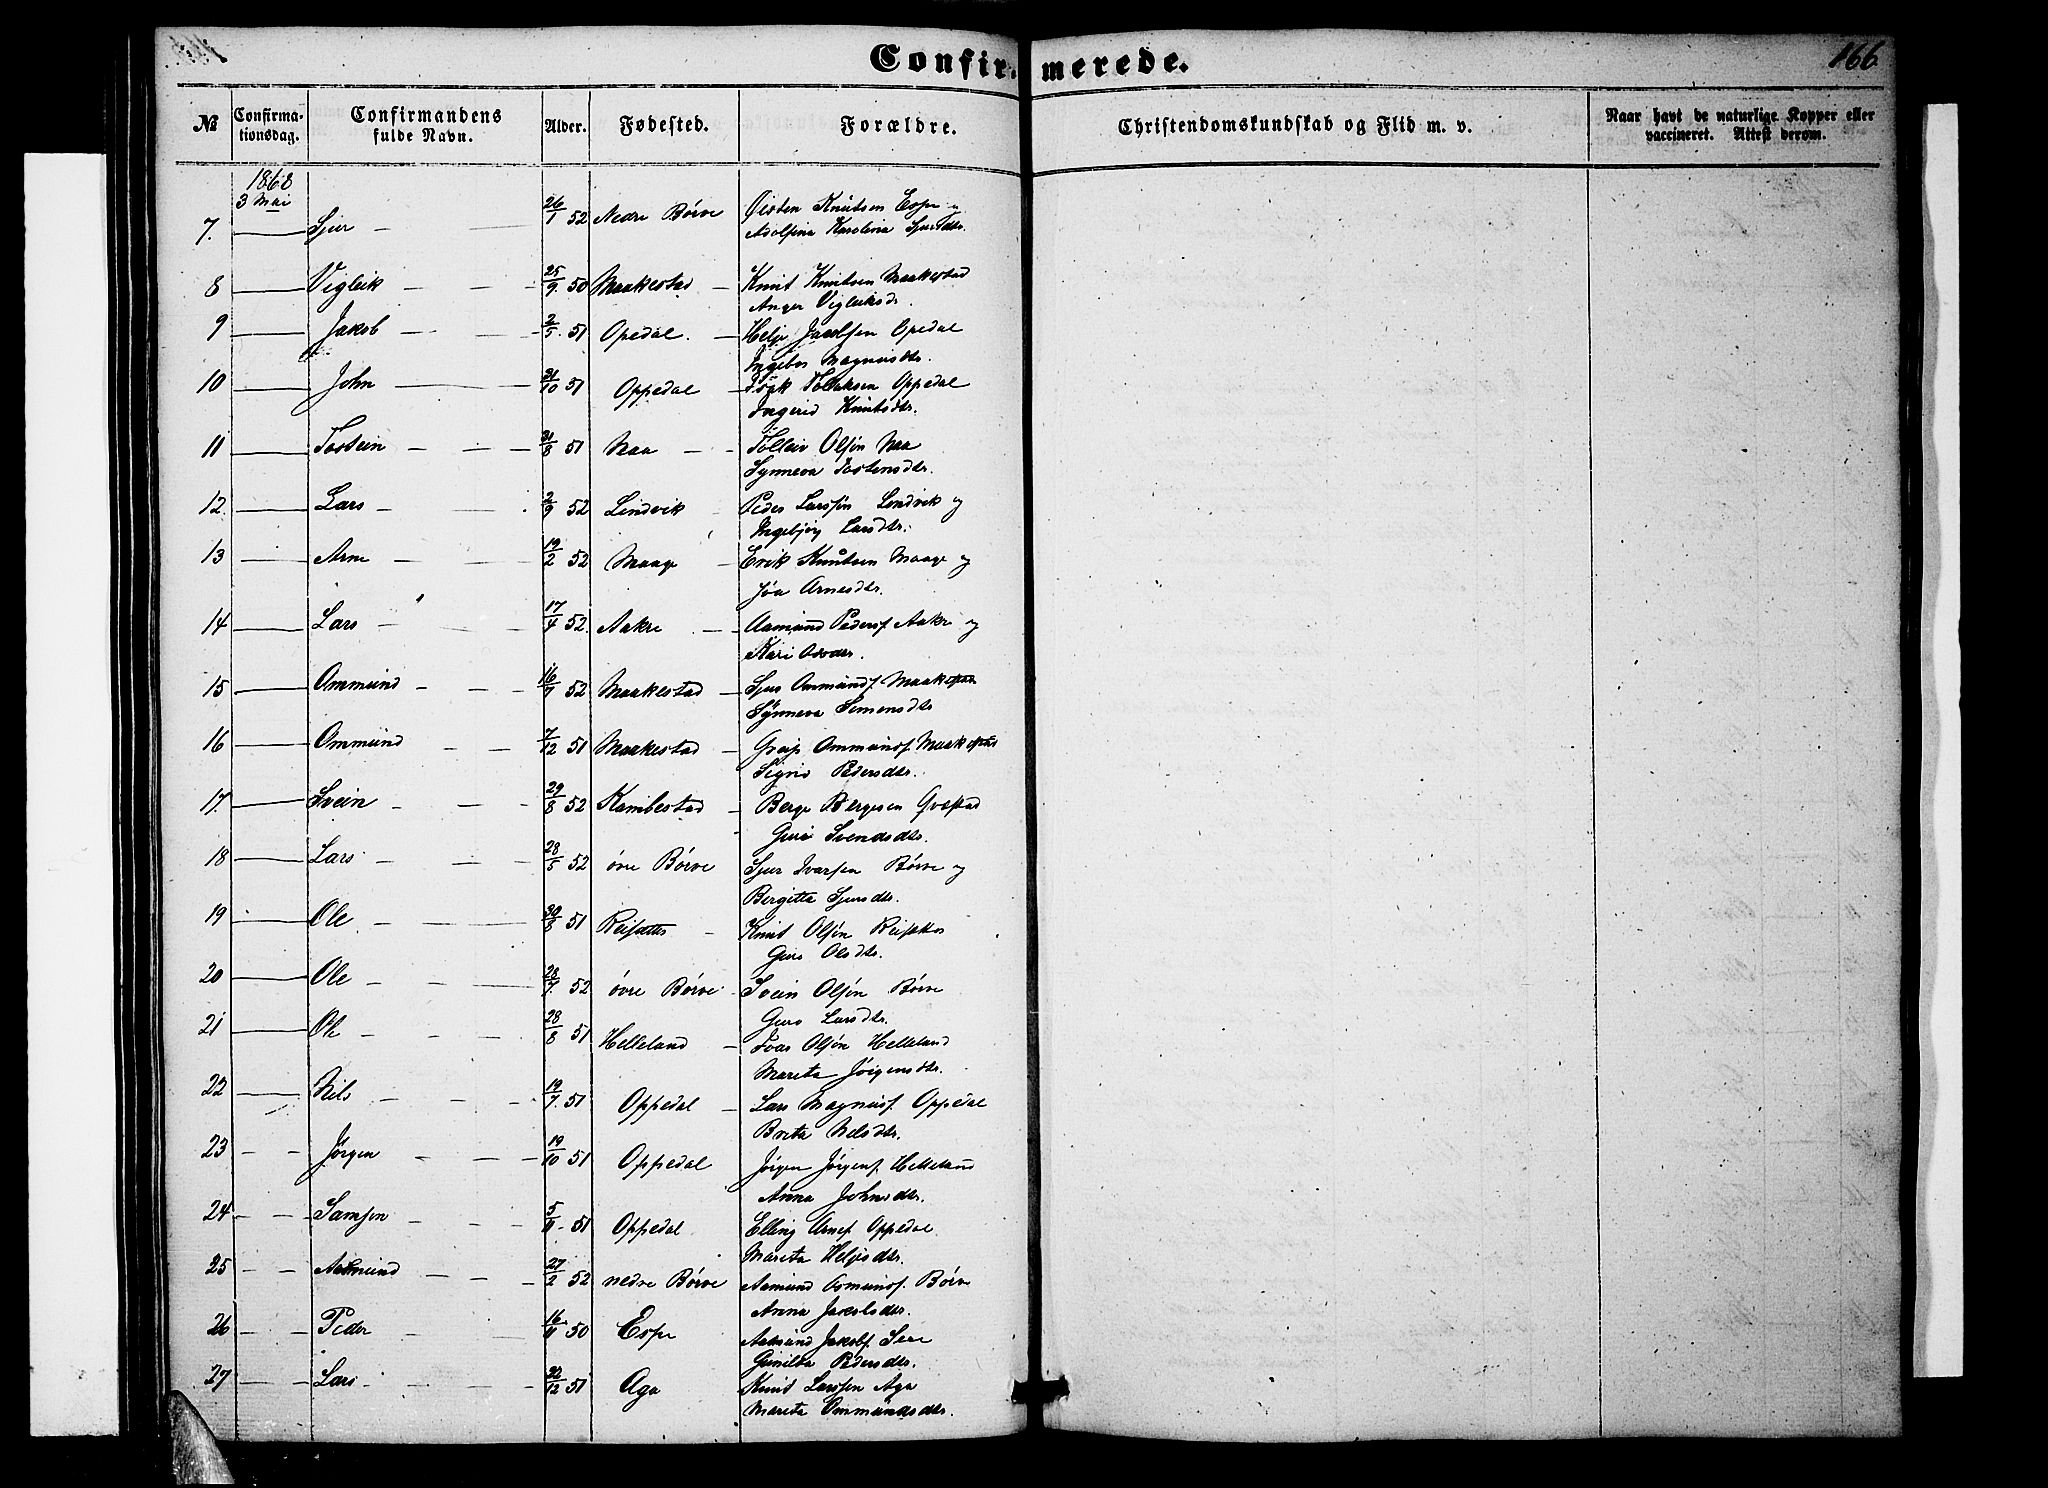 Confirmerede.
166
№ Confirmationsdag. Confirmandens fulde Navn. Alder. Fødested. Forældre. Christendomskundskab og Flid m. v. Naar havt de naturlige Kopper eller vaccineret. Attest derom.
1868
3 Mai
7. Sjur 26/1 52 Nedre Börve Öisten Knutsen Espe og
Adolfina Karolina Sjurdtr.
8 Vigleik 25/9 50 Maakestad Knut Knutsen Maakestad
Anger Vigleiksdr.
9 Jakob 2/5 51 Opedal Helje Jacobsen Opedal
Ingebor Magnusdtr.
10 John 31/10 51 Oppedal Tollaksen Oppedal
Ingerid Knutsdtr.
11 Tostein 31/8 51 Naa Tolleiv Olsön Naa
Synneva Tostensdtr.
12. Lars 2/9 52 Lindvik Peder Larssön Lindvik og
Ingebjörg Larsdtr.
13 Arne 19/2 52 Maage Erik Knutsen Maage og
Jóa Arnesdtr.
14 Lars 17/4 52. Aakre Aamund Pedersf Aakre og
Kari
15 Ommund 16/7 52 Maakestad Sjur Ommundf. Maakestad
Synneva Simensdtr
16 Ommund 7/12 51 Maakestad Greip Ommundf. Maakestad
Sigrid Pedersdtr.
17. Svein 29/8 52 Kambestad Berge Bergesen Qvæstad
Guri Svendsdtr.
18 Lars 28/5 52 övre Börve Sjur Ivarsen Börve og
Bergitta Sjursdtr.
19 Ole 30/8 51 Reisæter Knut Olsön Reisæter
Guro Olsdtr.
20 Ole 28/7. 52 övre Börve Svein Olsön Börve
Guro Larsdtr.
21 Ole 28/8 51 Helleland Ivar Olsön Helleland
Marita Jörgensdtr.
22 Nils 19/7. 51 Oppedal Lars Magnusf. Oppedal
Brita Nelsdtr.
23 Jörgen 19/10 51 Oppedal Jörgen Jörgenf. Helleland
Anna Johnsdtr.
24 Samson 5/11 51 Oppedal Elling Arnef Oppedal
Marita Heljesdtr.
25 Aamund 27/2 52 nedre Börve Aamund Osmundf. Börve
Anna Jakobsdtr.
26 Peder 16/11 50 Espe Aamund Jakobf.
Gunilda Pedersdtr.
27 Lars 22/12 51 Aga Knut Larssen Aga
Marita Ommundsdtr.